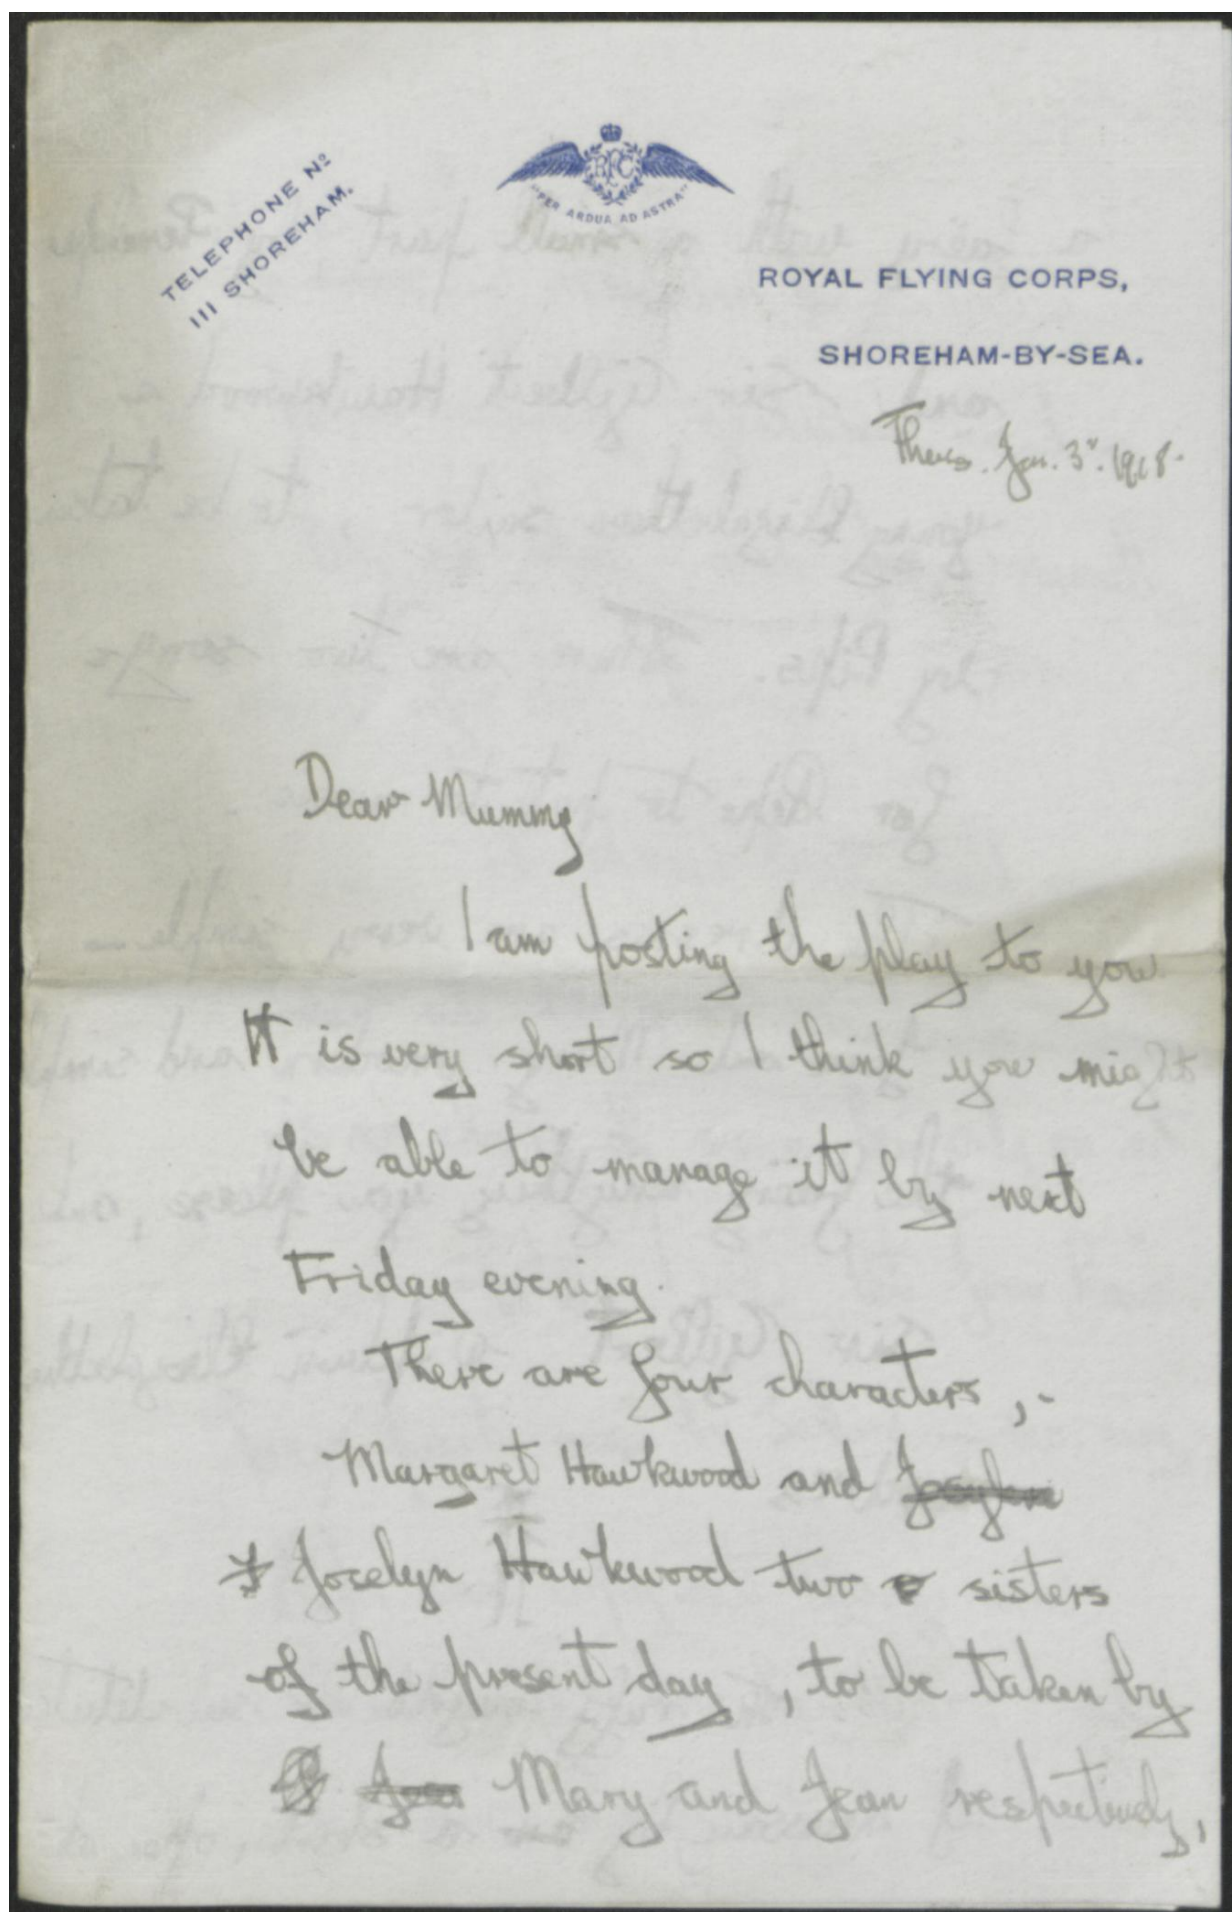 TELEPHONE Nº
111 SHOREHAM.
RFC
"PER ARDUA AD ASTRA"
ROYAL FLYING CORPS,
SHOREHAM-BY-SEA.
Thurs. Jan. 3rd. 1918.
Dear Mummy
I am posting the play to you
It is very short so I think you might
be able to manage it by next
Friday evening.
There are four characters,-
Margaret Hawkwood and
Jocelyn Hawkwood two sisters
of the present day, to be taken by
Mary and Jean respectively,